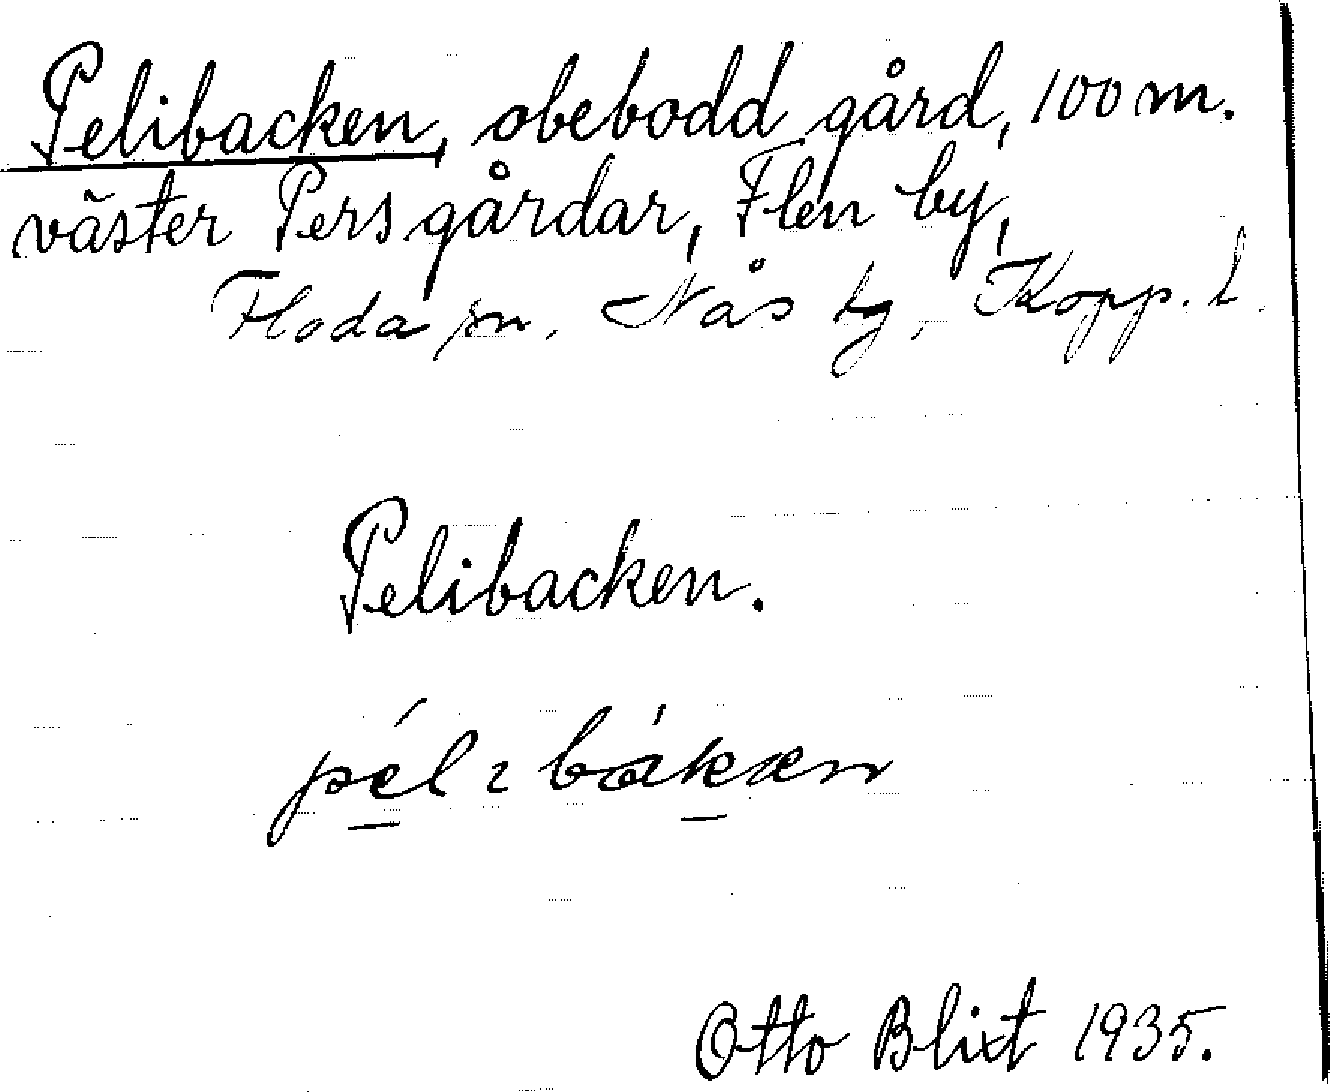 Pelibacken, obebodd gård, 100 m.
väster Pers gårdar, Flen by,
Floda sn. Nås tg, Kopp. l.
Pelibacken.
pélɩbákæn
Otto Blixt 1935.